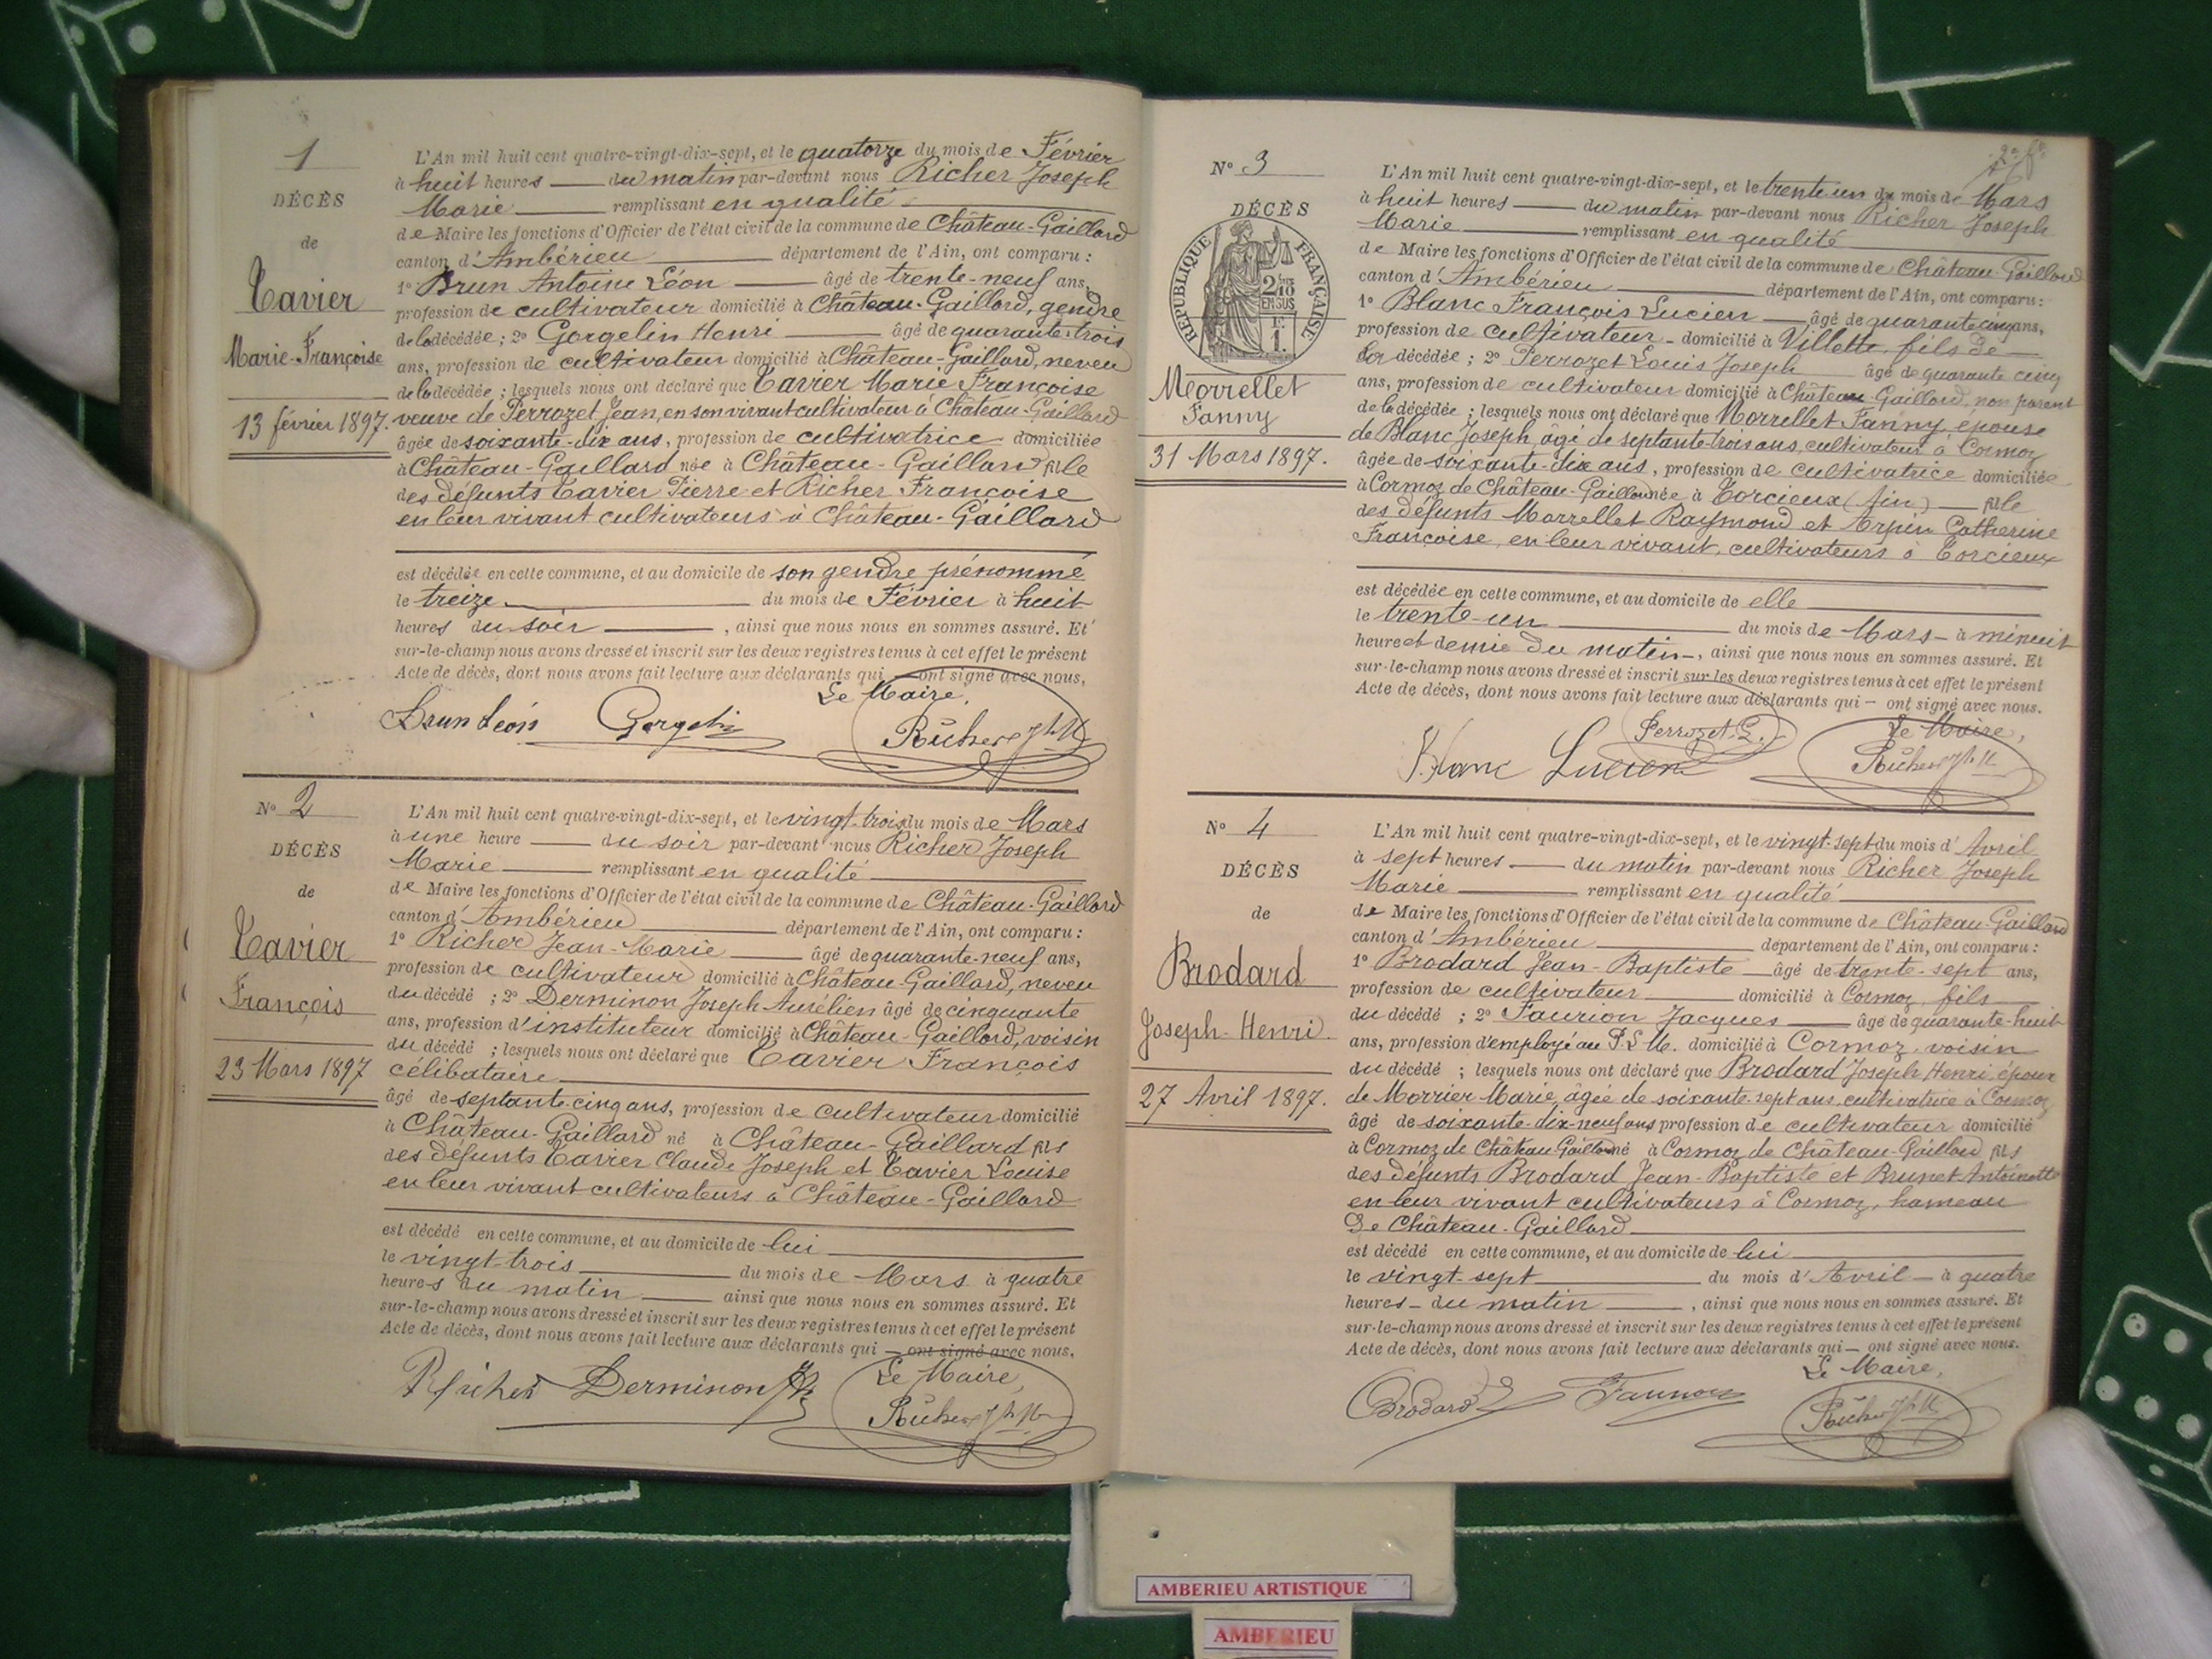 1
DÉCÈS
de
Tavier
Marie-Françoise
13 février 1897.
L'An mil huit cent quatre-vingt-dix-sept, et le quatorze du mois de Février
à huit heures du matin par-devant nous Richer Joseph
Marie remplissant en qualité
de Maire les fonctions d'Officier de l'état civil de la commune de Château-Gaillard
canton d'Ambérieu département de l'Ain, ont comparu :
1º Brun Antoine Léon âgé de trente-neuf ans,
profession de cultivateur domicilié à Château-Gaillard, gendre
de la décédée ; 2º Gorgelin Henri âgé de quarante-trois
ans, profession de cultivateur domicilié à Château-Gaillard, neveu
de la décédée ; lesquels nous ont déclaré que Tavier Marie Françoise
veuve de Perrozet Jean, en son vivant cultivateur à Château-Gaillard
âgée de soixante-dix ans, profession de cultivatrice domiciliée
à Château-Gaillard née à Château-Gaillard fille
des défunts Tavier Pierre et Richer Françoise
en leur vivant cultivateurs à Château-Gaillard
est décédée en cette commune, et au domicile de son gendre prénommé
le treize du mois de Février à huit
heures du soir, ainsi que nous nous en sommes assuré. Et
sur-le-champ nous avons dressé et inscrit sur les deux registres tenus à cet effet le présent
Acte de décès, dont nous avons fait lecture aux déclarants qui ont signé avec nous.
Le Maire,
Brun Léon Gorgelin Richer Jh M
Nº 2
DÉCÈS
de
Tavier
François
23 Mars 1897
L'An mil huit cent quatre-vingt-dix-sept, et le vingt-trois du mois de Mars
à une heure du soir par-devant nous Richer Joseph
Marie remplissant en qualité
de Maire les fonctions d'Officier de l'état civil de la commune de Château-Gaillard
canton d'Ambérieu département de l'Ain, ont comparu :
1º Richer Jean-Marie âgé de quarante-neuf ans,
profession de cultivateur domicilié à Château-Gaillard, neveu
du décédé ; 2º Derminon Joseph Aurélien âgé de cinquante
ans, profession d'instituteur domicilié à Château-Gaillard, voisin
du décédé ; lesquels nous ont déclaré que Tavier François
célibataire
âgé de septante-cinq ans, profession de cultivateur domicilié
à Château-Gaillard né à Château-Gaillard fils
des défunts Tavier Claude Joseph et Tavier Louise
en leur vivant cultivateurs à Château-Gaillard
est décédé en cette commune, et au domicile de lui
le vingt-trois du mois de Mars à quatre
heures du matin ainsi que nous nous en sommes assuré. Et
sur-le-champ nous avons dressé et inscrit sur les deux registres tenus à cet effet le présent
Acte de décès, dont nous avons fait lecture aux déclarants qui ont signé avec nous.
Le Maire,
Richer Derminon Richer Jh M
Nº 3
DÉCÈS
RÉPUBLIQUE FRANÇAISE
2/10 EN SUS
F. 1.
Morrellet
Fanny
31 Mars 1897.
L'An mil huit cent quatre-vingt-dix-sept, et le trente-un du mois de Mars
à huit heures du matin par-devant nous Richer Joseph
Marie remplissant en qualité
de Maire les fonctions d'Officier de l'état civil de la commune de Château-Gaillard
canton d'Ambérieu département de l'Ain, ont comparu :
1º Blanc François Lucien âgé de quarante cinq ans,
profession de cultivateur domicilié à Villette, fils de
la décédée ; 2º Perrozet Louis Joseph âgé de quarante cinq
ans, profession de cultivateur domicilié à Château-Gaillard, non parent
de la décédée ; lesquels nous ont déclaré que Morrellet Fanny, épouse
de Blanc Joseph, âgé de septante-trois ans, cultivateur à Cormoz
âgée de soixante-dix ans, profession de cultivatrice domiciliée
à Cormoz de Château-Gaillard née à Torcieux (Ain) fille
des défunts Morrellet Raymond et Arpin Catherine
Françoise, en leur vivant, cultivateurs à Torcieux
est décédée en cette commune, et au domicile de elle
le trente-un du mois de Mars à minuit
heure et demie du matin, ainsi que nous nous en sommes assuré. Et
sur-le-champ nous avons dressé et inscrit sur les deux registres tenus à cet effet le présent
Acte de décès, dont nous avons fait lecture aux déclarants qui ont signé avec nous.
Perrozet L. Le Maire,
Blanc Lucien Richer Jh M
Nº 4
DÉCÈS
de
Brodard
Joseph-Henri
27 Avril 1897.
L'An mil huit cent quatre-vingt-dix-sept, et le vingt-sept du mois d'Avril
à sept heures du matin par-devant nous Richer Joseph
Marie remplissant en qualité
de Maire les fonctions d'Officier de l'état civil de la commune de Château-Gaillard
canton d'Ambérieu département de l'Ain, ont comparu :
1º Brodard Jean-Baptiste âgé de trente-sept ans,
profession de cultivateur domicilié à Cormoz, fils
du décédé ; 2º Faurion Jacques âgé de quarante-huit
ans, profession d'employé au P.L.M. domicilié à Cormoz, voisin
du décédé ; lesquels nous ont déclaré que Brodard Joseph Henri, époux
de Morrier Marie, âgée de soixante-sept ans, cultivatrice à Cormoz
âgé de soixante-dix-neuf ans profession de cultivateur domicilié
à Cormoz de Château-Gaillard né à Cormoz de Château-Gaillard fils
des défunts Brodard Jean-Baptiste et Brunet Antoinette
en leur vivant cultivateurs à Cormoz, hameau
de Château-Gaillard
est décédé en cette commune, et au domicile de lui
le vingt-sept du mois d'Avril à quatre
heures du matin, ainsi que nous nous en sommes assuré. Et
sur-le-champ nous avons dressé et inscrit sur les deux registres tenus à cet effet le présent
Acte de décès, dont nous avons fait lecture aux déclarants qui ont signé avec nous.
Le Maire,
Brodard Richer Jh M
AMBERIEU ARTISTIQUE
AMBERIEU